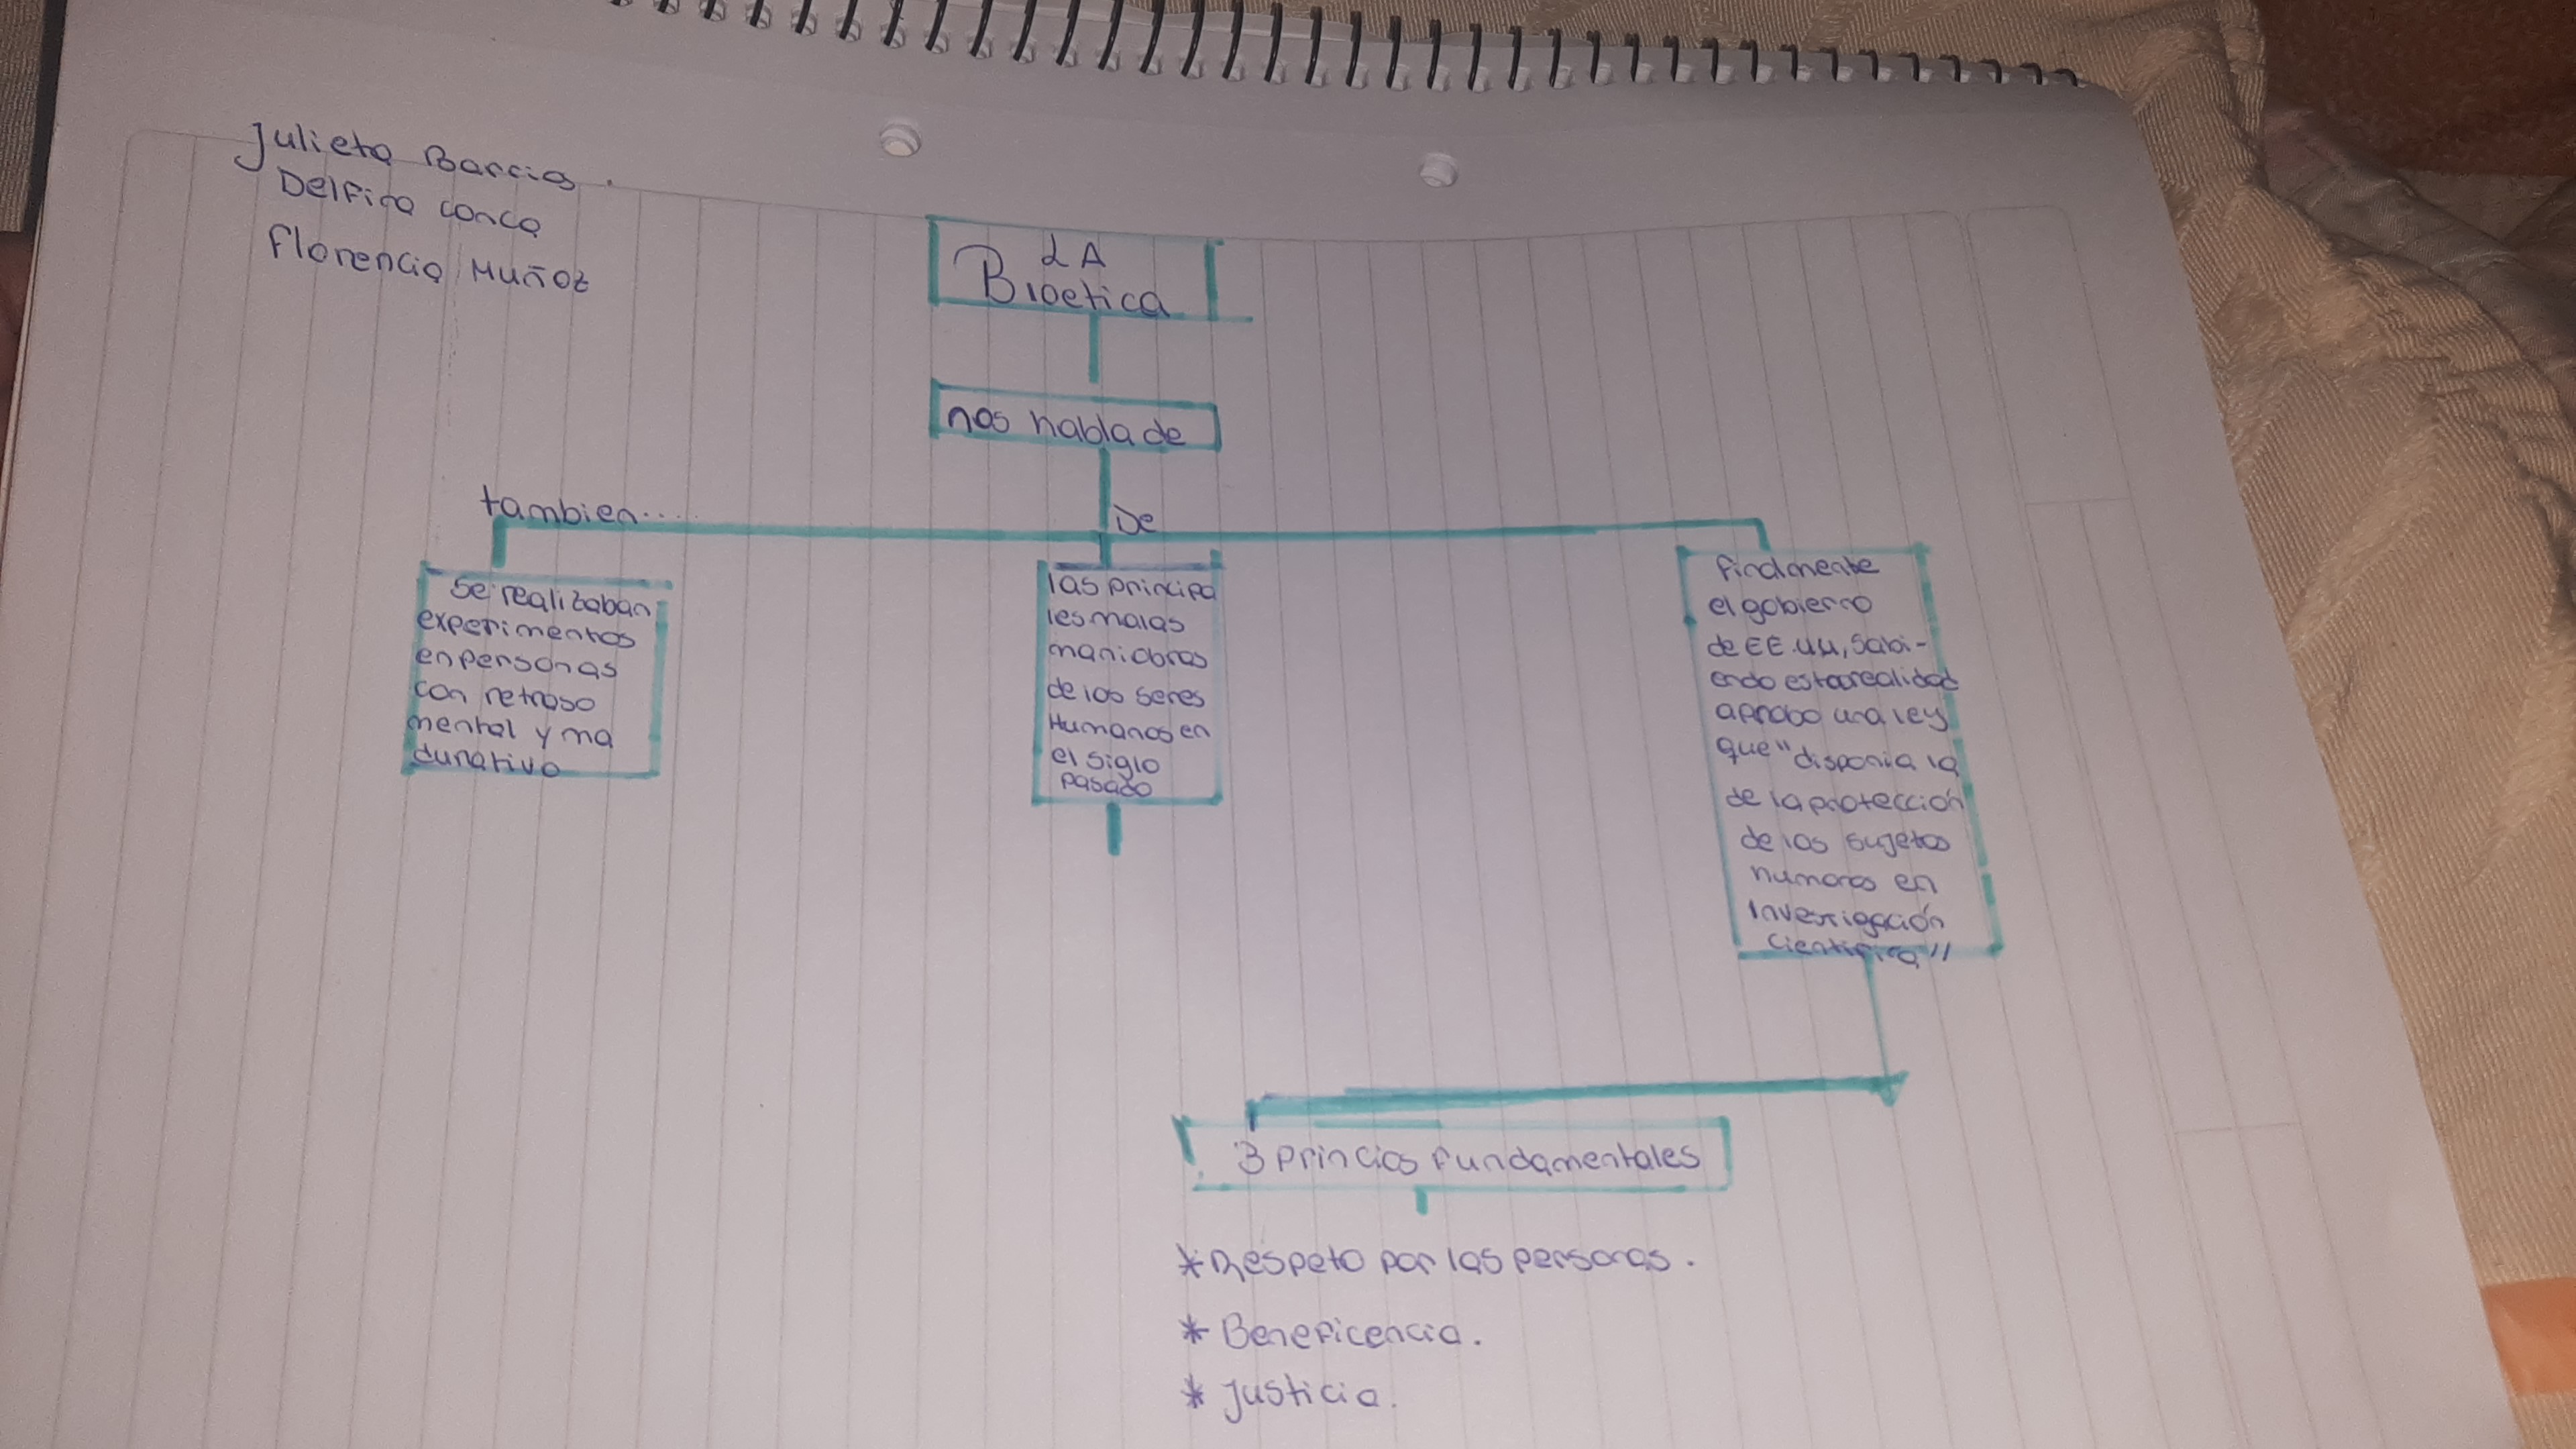 Julieta Barrios
Delfina conca
Florencia Muñoz
LA
Bioetica
nos habla de
tambien....
De
Se realizaban
experimentos
en personas
con retraso
mental y ma
durativo
las principa
les malas
maniobras
de los seres
Humanos en
el siglo
pasado
finalmente
el gobierno
de EE.UU, Sabi-
endo esta realidad
aprobo una ley
que "disponia la
de la protección
de los sujetos
humanos en
Investigación
cientifica"
3 princios fundamentales
* Respeto por las personas.
* Beneficencia.
* Justicia.